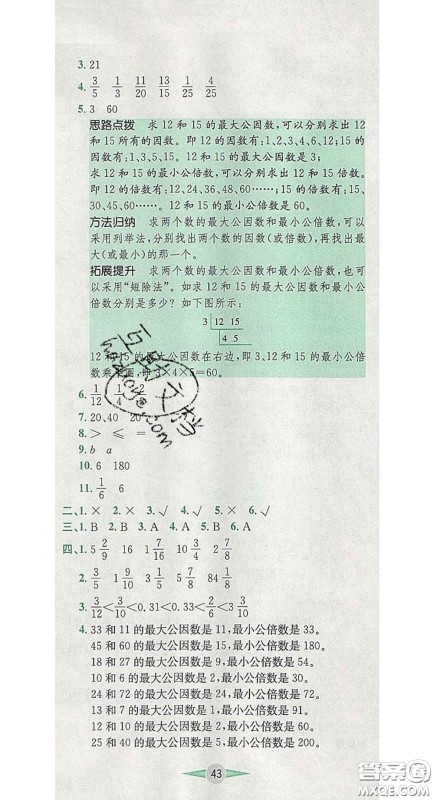 3. 21
4. 3/5 1/3 11/20 13/25 1/4 4/25
5. 3 60
思路点拨 求 12 和 15 的最大公因数,可以分别求出 12
和 15 所有的因数。即 12 的因数有:1、2、3、4、6、12;15 的因
数有:1、3、5、15。12 和 15 的最大公因数是 3;
求 12 和 15 的最小公倍数,可以分别求出 12 和 15
的倍数。即 12 的倍数有:12、24、36、48、60……;15 的倍数有:15、
30、45、60……。12 和 15 的最小公倍数是 60。
方法归纳 求两个数的最大公因数和最小公倍数,可以
采用列举法,分别找出两个数的因数(或倍数),再找出最
大(或最小)的那一个。
拓展提升 求两个数的最大公因数和最小公倍数,还可
以采用“短除法”。如求 12 和 15 的最大公因数和最小公
倍数分别是多少? 如下图所示:
3 12 15
4 5
12 和 15 的最大公因数在右边,即 3、12 和 15 的最小公倍
数乘 图,即 3×4×5=60。
6. 1/12 1/4
7. 20、40 20
8. > ⩽ =
9. b a
10. 6 180
11. 1/6 6
二、1. × 2. × 3. √ 4. × 5. √
三、1. B 2. A 3. A 4. B 5. B 6. A
四、1. 5 2/9 16 1 7/16 10 3/4 2 7/8
2. 3/5 1 9/10 3 1/8 5 7/8 84 1/8
3. 3/12<3/10<0.31<0.3<1/2<3/5
4. 33 和 11 的最大公因数是 11,最小公倍数是 33。
45 和 60 的最大公因数是 15,最小公倍数是 180。
18 和 27 的最大公因数是 9,最小公倍数是 54。
10 和 6 的最大公因数是 2,最小公倍数是 30。
24 和 72 的最大公因数是 24,最小公倍数是 72。
13 和 12 的最大公因数是 1,最小公倍数是 156。
12 和 10 的最大公因数是 2,最小公倍数是 60。
25 和 40 的最大公因数是 5,最小公倍数是 200。
43
答案圈
MXQE.COM